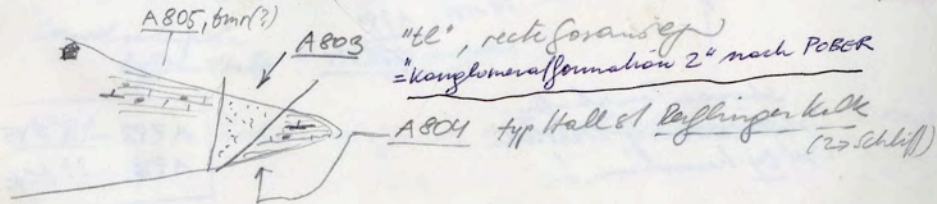 A805, tmr(?)
A803 "tl",
="Konglomeratformation 2" nach POBER
A804 typ Hallst Reiflinger Kalk
(→ Schliff)